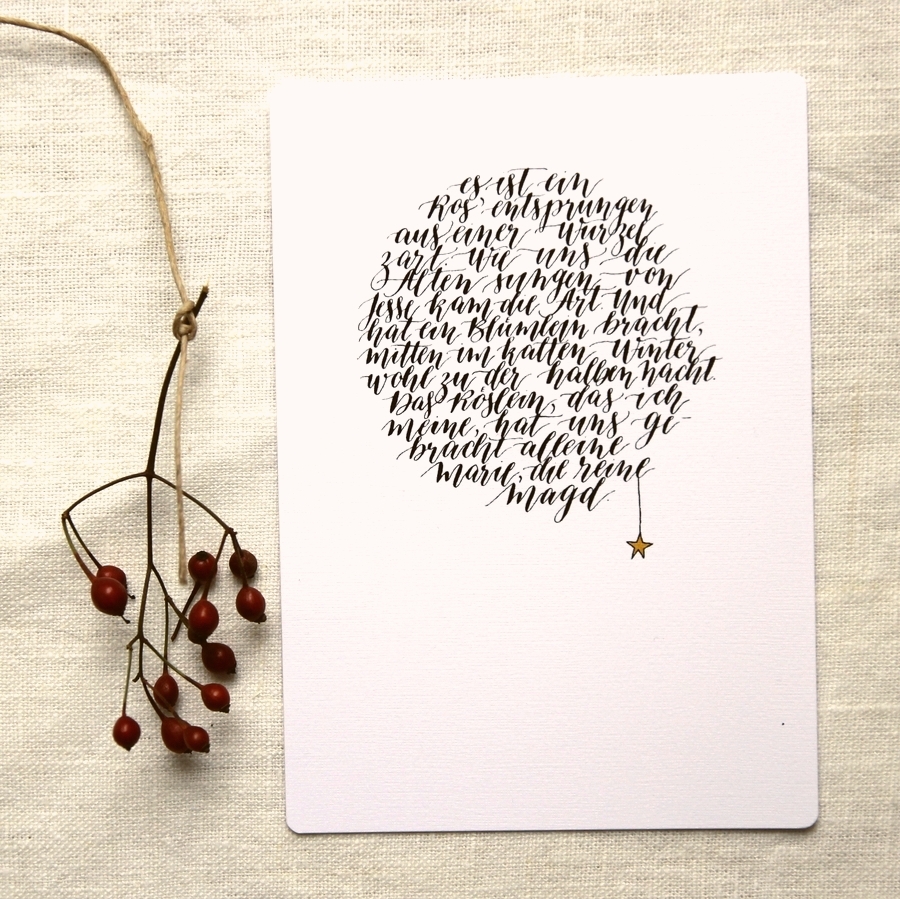 es ist ein
Ros' entsprungen
aus einer Wurzel
zart. wie uns die
Alten sungen, von
Jesse kam die Art. Und
hat ein Blümlein bracht,
mitten im kalten Winter
wohl zu der halben nacht.
Das Röslein, das ich
meine, hat uns ge-
bracht alleine
Marie, die reine
Magd.